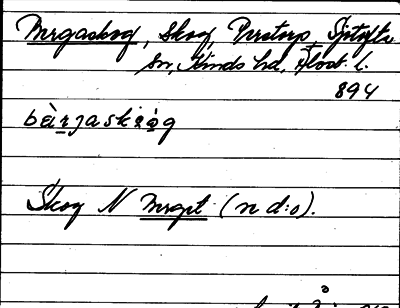 Bergaskog, Skog, Perstorp, Sjötofta
sn, Kinds hd, Älvsb. l.
894
bèrjaskòg
Skog N Berget (n d:o).